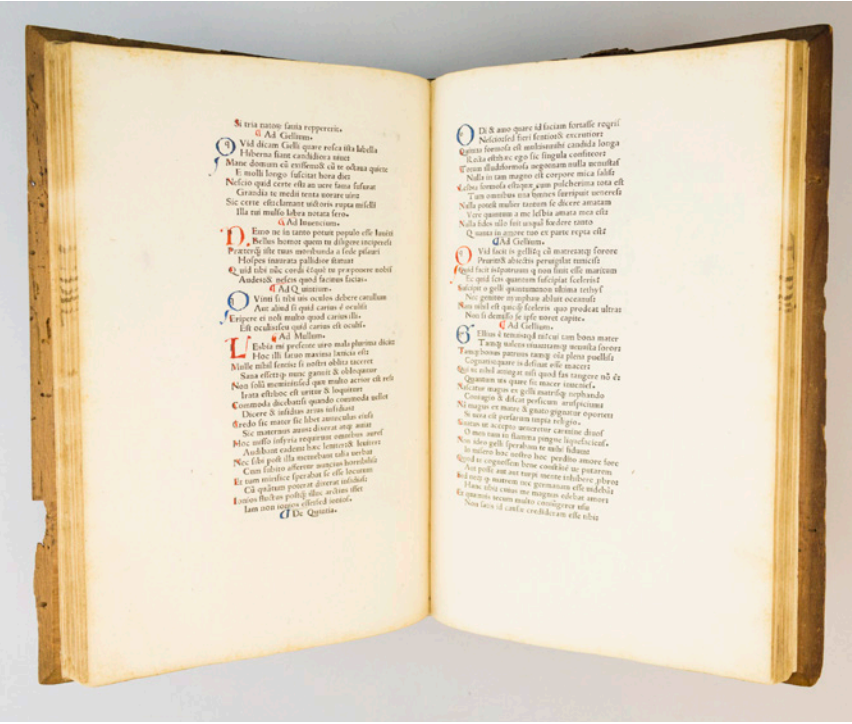 Si tria natorum suauia reppererit.
Ad Gellium.
Q Vid dicam Gelli quare rosea ista labella
Hiberna fiant candidiora niue
Mane domum cū exis & cū te octaua quiete
E molli longo suscitat hora die
Nescio quid certe est an uere fama susurrat
Grandia te medii tenta uorare uiri
Sic certe est clamant uictoris rupta miselli
Illa tui mulso labra notata sero.
Ad Iuuencium.
N Emo ne in tanto potuit populo esse Iuuēti
Bellus homo quem tu diligere inciperes
Præterq̄ iste tuus moribunda a sede pisauri
Hospes inaurata pallidior statua
Quid tibi nūc cordi ē quē tu præponere nobis
Audes & nescis quod facinus facias.
Ad Quintium.
Q Vinti si tibi uis oculos debere catullum
Aut aliud si quid carius ē oculis
Eripere ei noli multo quod carius illi.
Est oculis seu quid carius est oculis.
Ad Mullum.
L Esbia mi presente uiro mala plurima dicit
Hoc illi fatuo maxima lætitia est
Mulle nihil sentis si nostri oblita taceret
Sana esset nunc gannit & obloquitur
Non solū meminit sed quæ multo acrior est res
Irata est hoc est uritur & loquitur
Commoda dicebat si quando commoda uellet
Dicere & insidias arrius insidias
Credo sic mater sic liber auunculus eius
Sic maternus auus dixerat atq̄ auia
Hoc misso insyria requirunt omnibus aures
Audibant eadem hæc leniter & leuiter
Nec sibi post illa metuebant talia uerba
Cum subito affertur nuncius horribilis
Et tum mirifice sperabat se esse locutum
Cū quātum poterat dixerat insidias
Ionios fluctus postq̄ illuc arrius isset
Iam non ionios esse sed ionios.
De Quintia.
O Di & amo quare id faciam fortasse requiris
Nescio sed fieri sentio & excrucior
Quintia formosa est multis mihi candida longa
Recta est hæc ego sic singula confiteor
Totum illud formosa nego nam nulla uenustas
Nulla in tam magno est corpore mica salis
Lesbia formosa est quæ cum pulcherima tota est
Tum omnibus una omnes surripuit ueneres
Nulla potest mulier tantum se dicere amatam
Vere quantum a me lesbia amata mea est
Nulla fides ullo fuit unquā foedere tanto
Quanta in amore tuo ex parte repta est
Ad Gellium.
Q Vid facit is gelli q̄ cū matre atq̄ sorore
Prurit & abiectis peruigilat tunicis
Quid facit is patruum q non sinit esse maritum
Ec quid scis quantum suscipiat sceleris
Suscipit o gelli quantum non ultima tethys
Nec genitor nympharum abluit oceanus
Nam nihil est quicq̄ sceleris quo prodeat ultra
Non si demisso se ipse uoret capite.
Ad Gellium.
G Ellius ē tenuis quid ni cui tam bona mater
Tamq̄ ualens uiuat tamq̄ uenusta soror
Tamq̄ bonus patruus tamq̄ oīa plena puellis
Cognatis quare is desinat esse macer
Qui ut nihil attingat nisi quod fas tangere nō ē
Quantum uis quare sit macer inuenies.
Nascatur magus ex gelli matrisq̄ nephando
Coniugio & discat persicum aruspicium
Nam magus ex matre & gnato gignatur oportet
Si uera est persarum impia religio.
Gnatus ut accepto ueneretur carmine diuos
Omentum in flamma pingue liquefaciens.
Non ideo gelli sperabam te mihi fidum
In misero hoc nostro hoc perdito amore fore
Quod te cognossem bene constātē ue putarem
Aut posse aut turpi mente inhibere probro
Sed neq̄ quod matrem nec germanam esse uidebā
Hanc tibi cuius me magnus edebat amor
Et quamuis tecum multo coniungerer usu
Non satis id causæ credideram esse tibi